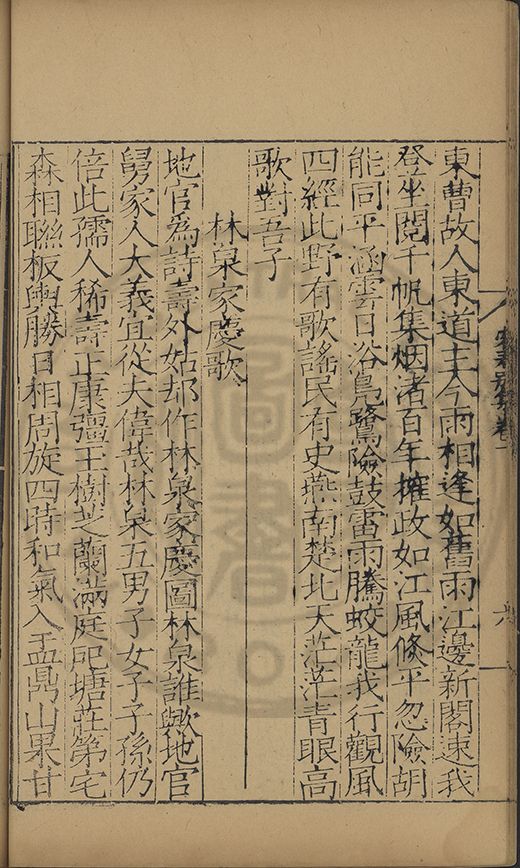 東曹故人東道主今雨相逢如舊雨江邊新閣速我
登坐閱千帆集烟渚百年摧政如江風倏平忽險胡
能同平涵雲日浴鳧鷖險鼓雷雨騰蛟龍我行觀風
四經此野有歌謠民有史燕南楚北天茫茫青眼高
歌對吾子
林泉家慶歌
地官爲詩壽外姑却作林泉家慶圖林泉誰歟地官
舅家人大義宜從夫偉哉林泉五男子女子子孫仍
倍此孺人稀壽正康彊玉樹芝蘭滿庭戺塘莊第宅
森相聯板輿勝日相周旋四時和氣入盂鼎山果甘
集卷一
六